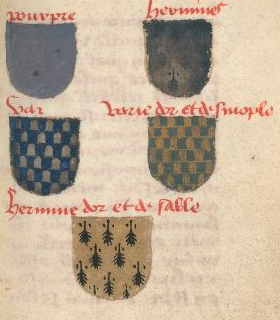 pourpre
hermines
Vair
Varie dor et de sinople
Hermine dor et de sable